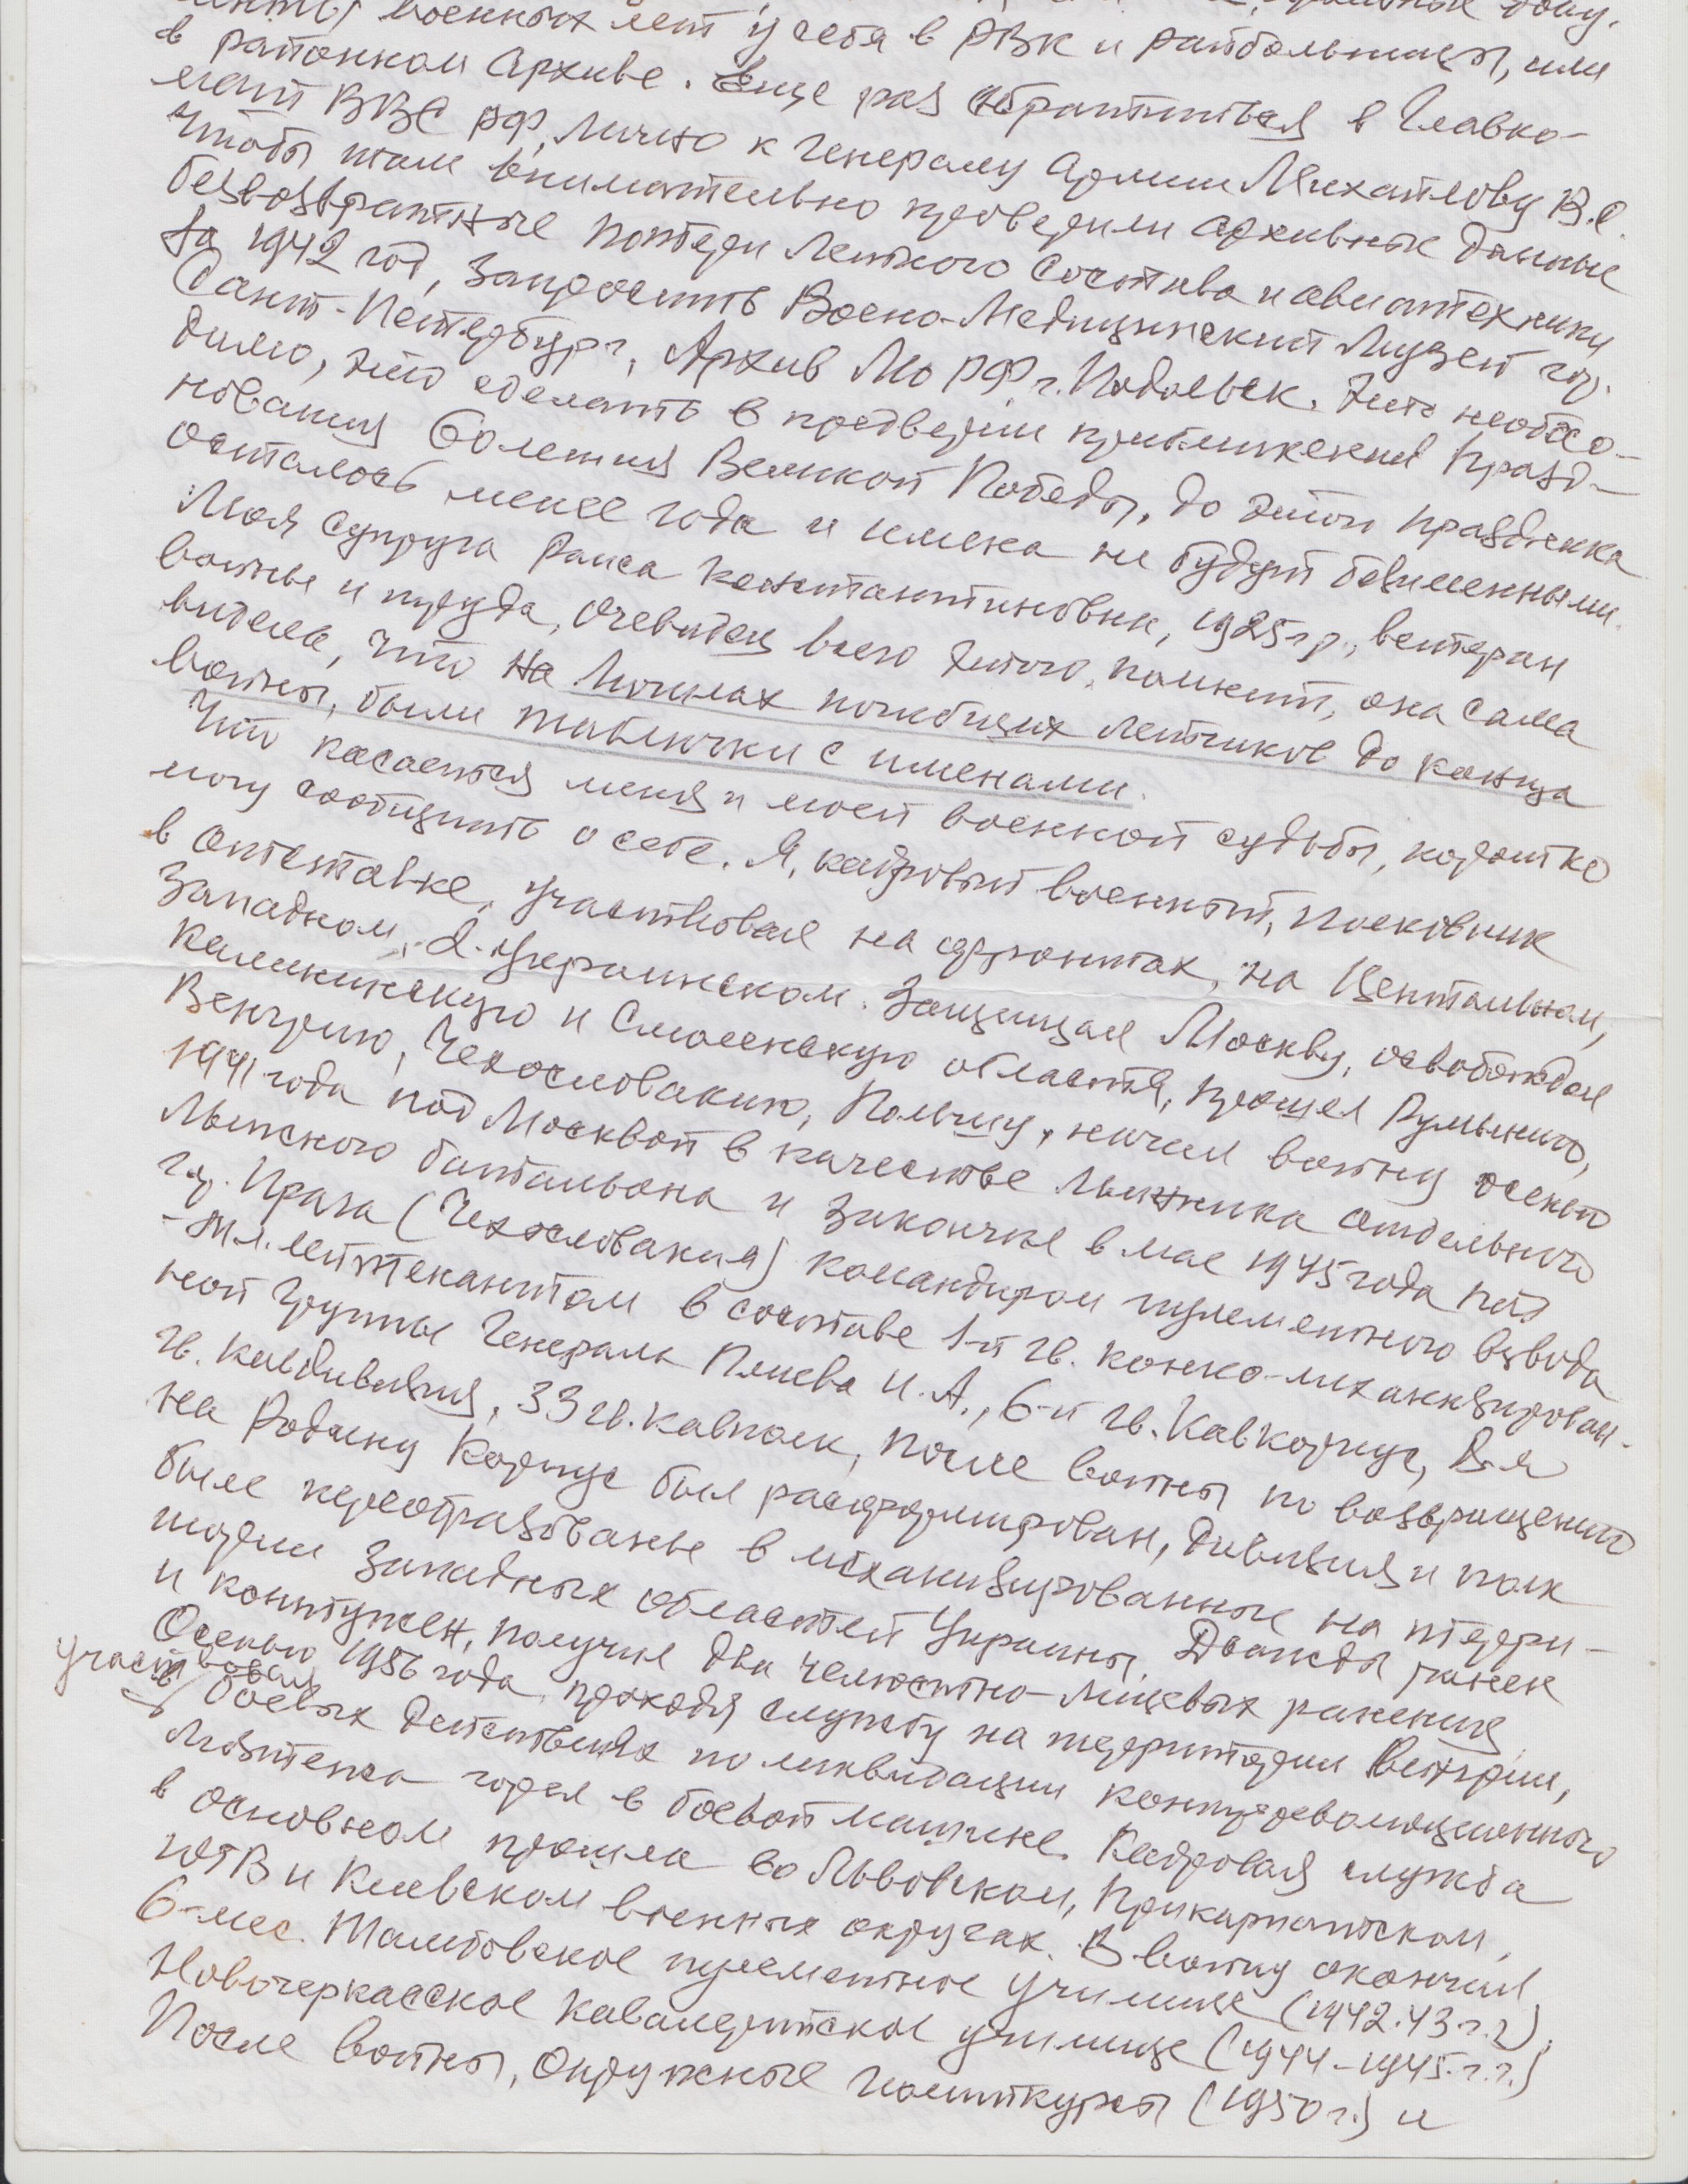 военных лет у себя в РВК и райбольницы, или
в районном Архиве. Еще раз обратиться в Главко-
мат ВВС РФ, лично к генералу Армии Михайлову В.С.
Чтобы там внимательно проверили архивные данные
безвозвратные потери летного состава и авиатехники
за 1942 год, запросить Воено-Медицинский Музей гор.
Санкт-Петербург, Архив Мо РФ, г. Подольск. Это необхо-
димо, это сделать в предверии приближения празд-
нования 60 летия Великой Победы, до этого праздника
осталось менее года и имена не будут безименными.
Моя супруга Раиса Константиновна, 1925 г.р., ветеран
войны и труда, очевидец всего этого, помнит, она сама
видела, что на могилах погибших летчиков до конца
войны, были таблички с именами.
Что касается меня и моей военной судьбы, коротко
могу сообщить о себе. Я, кадровый военный, полковник
в отставке, участвовал на фронтах, на Центральном,
Западном, 2-Украинском. Защищал Москву, освобождал
Калининскую и Смоленскую области, прошел Румынию,
Венгрию, Чехословакию, Польшу, начал войну осенью
1941 года под Москвой в качестве лыжника отдельного
лыжного батальона и закончил в мае 1945 года под
гор. Прага (Чехословакия) командиром пулеметного взвода
-мл. лейтенантом в составе 1-й гв. конно-механизирован-
ной группы Генерала Плиева И.А., 6-й гв. Кавкорпус, 8-я
гв. кавдивизия, 33 гв. кавполк, после войны по возвращению
на Родину Корпус был расформирован, дивизия и полк
были переобразованы в механизированные на терри-
тории Западных областей Украины. Дважды ранен
и контужен, получил два челюстно-лицевых ранения
Осенью 1956 года, проходя службу на территории Венгрии,
участвовал
в боевых действиях по ликвидации контрреволюционного
мятежа горел в боевой машине. Кадровая служба
в основном прошла во Львовском, Прикарпатском,
ЮГВ и Киевском военных округах. В войну окончил
6-мес. Тамбовское пулеметное училище (1942-43 г.г.),
Новочеркасское кавалерийское училище (1944-1945 г.г.)
После войны, окружные политкурсы (1950 г.) и